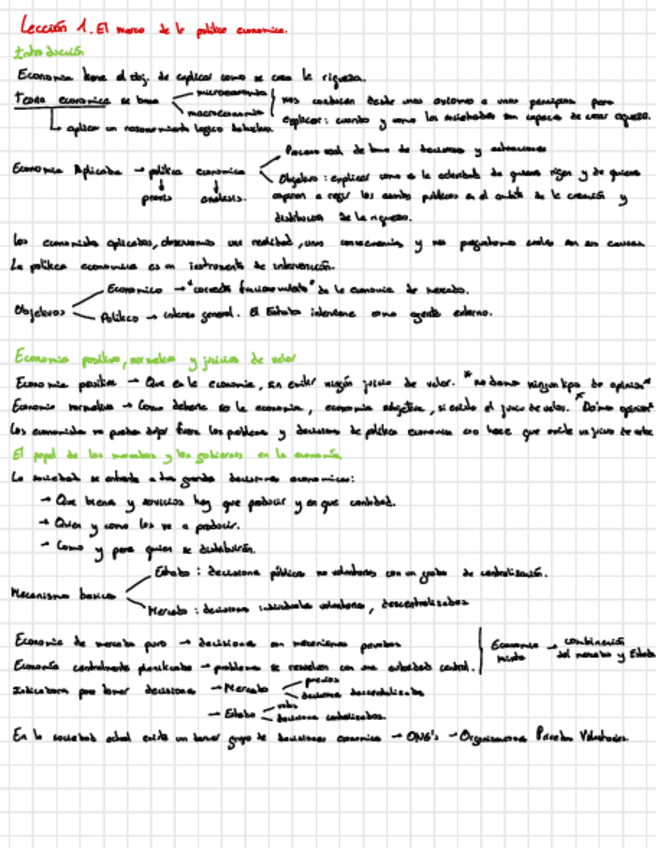 Lección 1. El marco de la política economica.
Introducción
Economia tiene el obj. de explicar como se crea la riqueza.
Teoria economica se basa
microeconomia
macroeconomia
nos conducen desde unos axiomas a unos principios para
explicar: cuando y como las sociedades son capaces de crear riqueza.
aplicar un razonamiento logico deductivo
Economia Aplicada → politica economica
praxis analisis.
Proceso real de toma de decisiones y actuaciones
Objetivo: explicar como es la actividad de quienes rigen y de quienes
aspiran a regir los asuntos públicos en el ambito de la creación y
distribucion de la riqueza.
Los economistas aplicados, observamos una realidad, unas consecuencias, y nos preguntamos cuales son sus causas
La politica economica es un instrumento de intervención.
Objetivos
Economico → "correcto funcionamiento" de la economia de mercado.
Politico → interes general. El Estado interviene como agente externo.
Economia positiva, normativa y juicios de valor
Economia positiva → Que es la economia, sin emitir ningún juicio de valor. *no damos ningun tipo de opinion*
Economia normativa → Como deberia ser la economia, economia subjetiva, si existe el juicio de valor. *Damos opinion*
Los economistas no pueden dejar fuera los problemas y decisiones de politica economica eso hace que emita un juicio de valor
El papel de los mercados y los gobiernos en la economía
La sociedad se enfrenta a tres grandes decisiones economicas:
→ Que bienes y servicios hay que producir y en que cantidad.
→ Quien y como los va a producir.
→ Como y para quien se distribuirán.
Mecanismos basicos
Estado: decisiones públicas no voluntarias con un grado de centralización.
Mercado: decisiones individuales voluntarias, descentralizadas
Economia de mercado puro → decisiones son mecanismos privados
Economía centralmente planificada → problemas se resuelven con una autoridad central.
Economia mixta → combinación del mercado y Estado
Indicadores para tomar decisiones → Mercado
precios
decisiones descentralizadas
→ Estado
votos
decisiones centralizadas.
En la sociedad actual existe un tercer grupo de decisiones economicas → ONG's → Organizaciones Privadas Voluntarias.